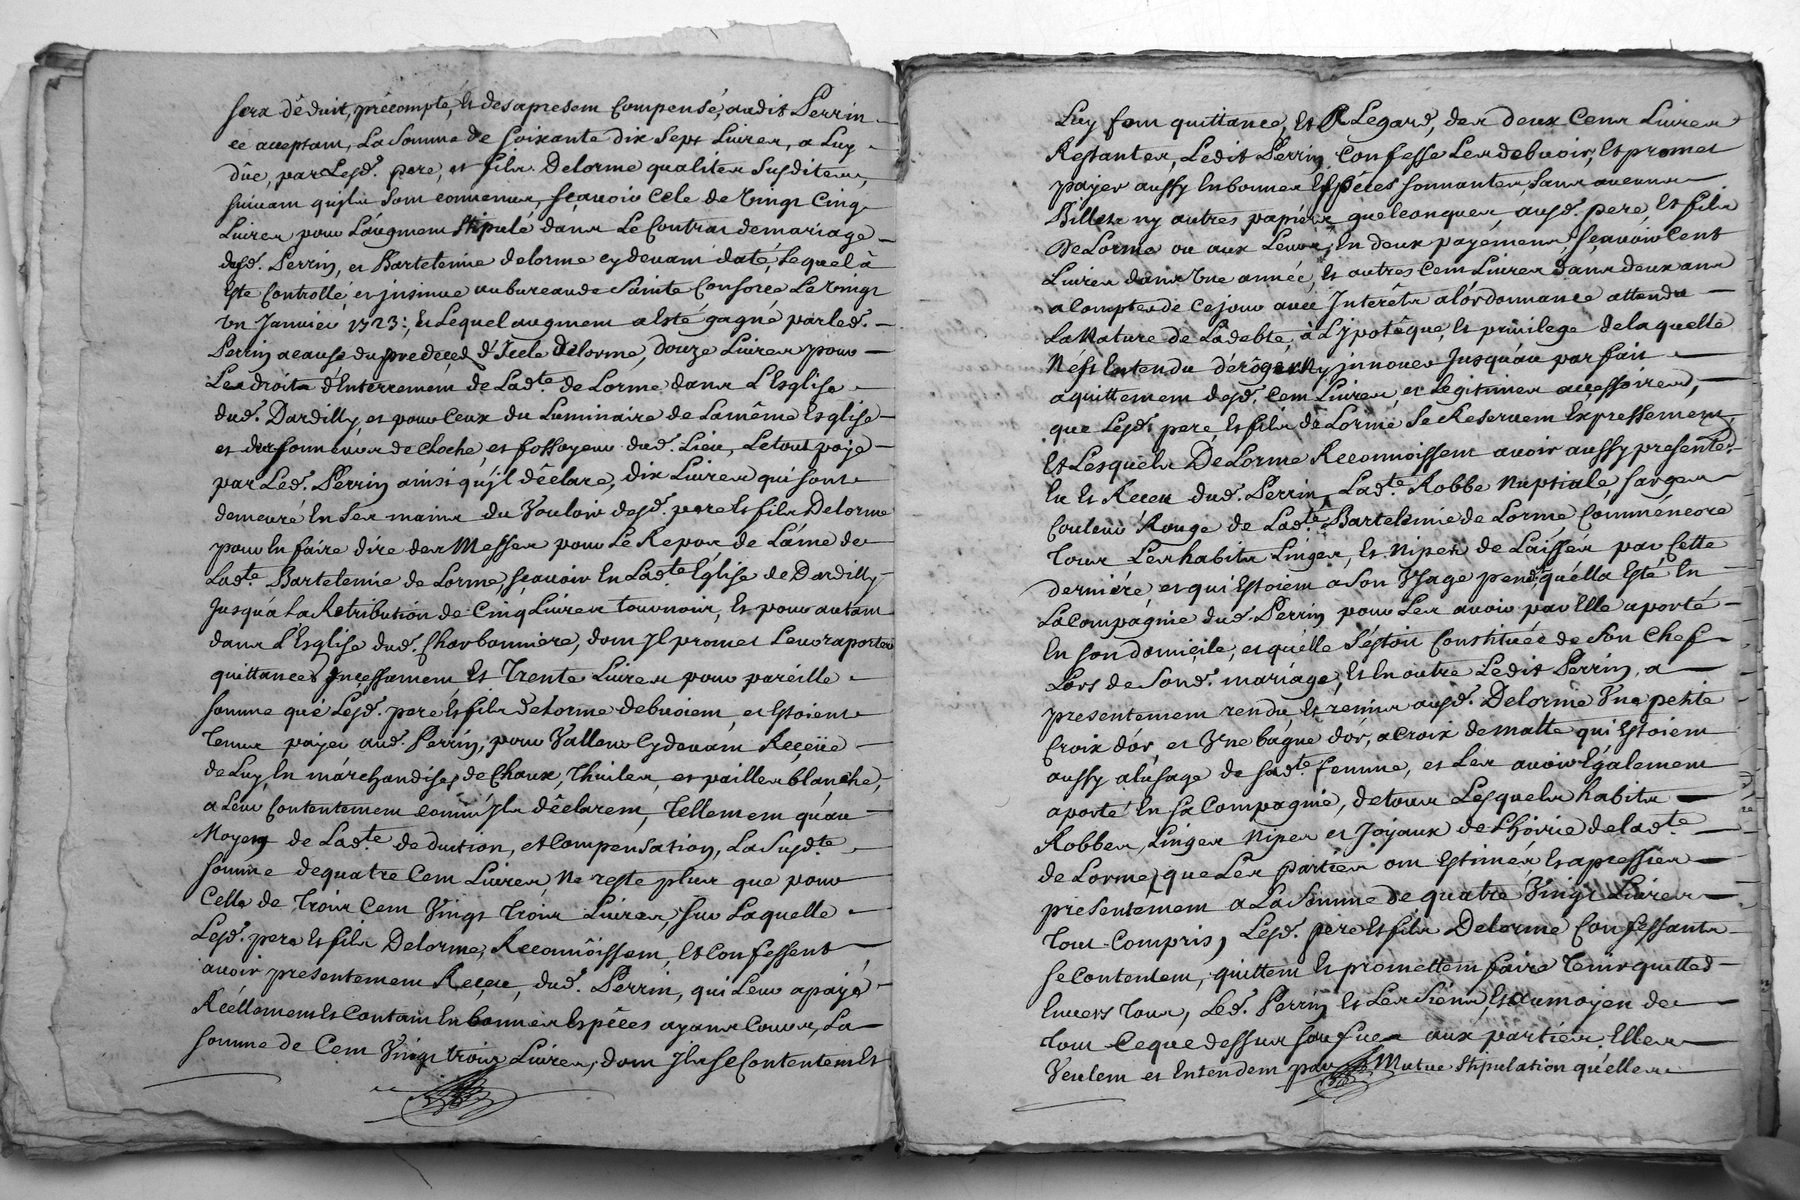 sera déduit, précompté, et desapresent Compensé, audit Perrin
ce acceptant, La Somme de Soixante dix Sept Livres, a Luy
dûe, par Lesd. pere, et fils Delorme qualités Susdites,
suivant qu'ils Sont convenus, sçavoir Cele de Vingt Cinq
Livres pour L'augment Stipulé dans Le Contrat demariage
dud. Perrin, et Bartelemie delorme cy devant daté, Lequel â
Esté Controllé, et jnsinué au bureau de Sainte Consorce Le Vingt
un Janvier 1723: et Lequel augment a Esté gagné par Led.
Perrin acause du predeced d'Icele Delorme, Douze Livres pour
Les droits d'Enterrement de Lad.te de Lorme dans L'Esglise
dud. Dardilly, et pour Ceux du Luminaire de Lamême Esglise
et des sonneurs de Cloche, et fossoyeur dud. Lieu, Le tout payé
par Led. Perrin ainsi qu'jl dêclare, dix Livres qui sont
demeuré En Ses mains du Vouloir desd. pere et fils Delorme
pour En faire dire des Messes pour Le Repos de L'áme de
Lad.te Bartelemie de Lorme, sçavoir En Lad.te Eglise de Dardilly
Jusqu'a La Retribution de Cinq Livres tournois, Et pour autant
dans L'Esglise dud. Charbonniere, dont Jl promet Leur raporter
quittances Jncessament Et Trente Livres pour paréille
somme que Lesd. pere et fils delorme debvoient, et Estoient
Tenus payer aud. Perrin, pour Valleur Cydevant Reçeüe
de Luy En márchandises de Chaux, Thuiles, et pailles blanche,
a Leur Contentement comm'Jls dêclarent, Tellement qu'au
Moyen de Lad.te deduction, et Compensation, La Susd.te
somme dequatre Cent Livres, Ne reste plus que pour
Celle de Trois Cent Vingt Trois Livres, sur Laquelle
Lesd. pere Et fils Delorme, Reconnôissent, et Confessent
avoir presentement Reçeu, dud. Perrin, qui Leur a payé
Réêllement et Contant En bonnes Espêces ayant Cours, La
somme de Cent Vingt trois Livres, dont Jls se Contentent Et
Luy font quittance, Et A L'egard, des deux Cent Livres
Restantes, Ledit Perrin Confesse Les debvoir, Et promet
payer aussy En bonnes Espêces sonnantes, sans aucuns
Billets ny autres papiérs quelconques, ausd. pere, Et fils
DeLorme ou aux Leurs, En deux payéments, sçavoir Cent
Livres dans Vne année, Et autres Cent Livres dans deux ans
a Compter de Ce jour avec Jnterêts a L'órdonnance attendu
La Nature de La debte, à L'ypotêque, Et privilege de Laquelle
N'est Entendu dérôger Ny jnnover Jusqu'au parfait
aquittement desd. Cent Livres, et Legitimes accessoires,
que Lesd. pere, Et fils de Lorme Se Reservent Expressement
Et Lesquels DeLorme Reconnoissent avoir aussy presente.
En Et Reçeu dud. Perrin, Lad.te Robbe Nuptiale, sarge
Couleur Rouge de Lad.te Bartelemie de Lorme Comméncore
Tous Les habits Linges, Et Nipes de Laissés par Cette
derniére, et qui Estoient a Son Usage pend.t qu'élla Esté En
La Compágnie dud. Perrin pour Les avoir par Elle aporté
En son domiçile, et qu'élle S'éstoit Constituée de Son Chef
Lors de Sond. mariáge, Et En outre Ledit Perrin, a
presentement rendu, Et remis ausd. Delorme Vne petite
Croix d'ór, et Vne bágue d'ór, a Croix de malte qui Estoient
aussy a L'usage de sad.te femme, et Les avoir Également
aporté En sa Compagnie, de tous Lesquels habits
Robbes, Linges Nipes et Joyaux de L'hoirie de Lad.te
de Lorme, que Les parties ont Estimés Et apressiés
presentement a La Somme de quatre Vingt Livres
Tout Compris, Lesd. pere Et fils Delorme Confessants
se Contentent, quittent Et promettent faire Tenir quitted
Envers Tous, Led. Perrin Et Les Siéns, Et au moyen de
Tout Ce que dessus aux parties Elles
Veulent et Entendent par Mutue Stipulation qu'elles